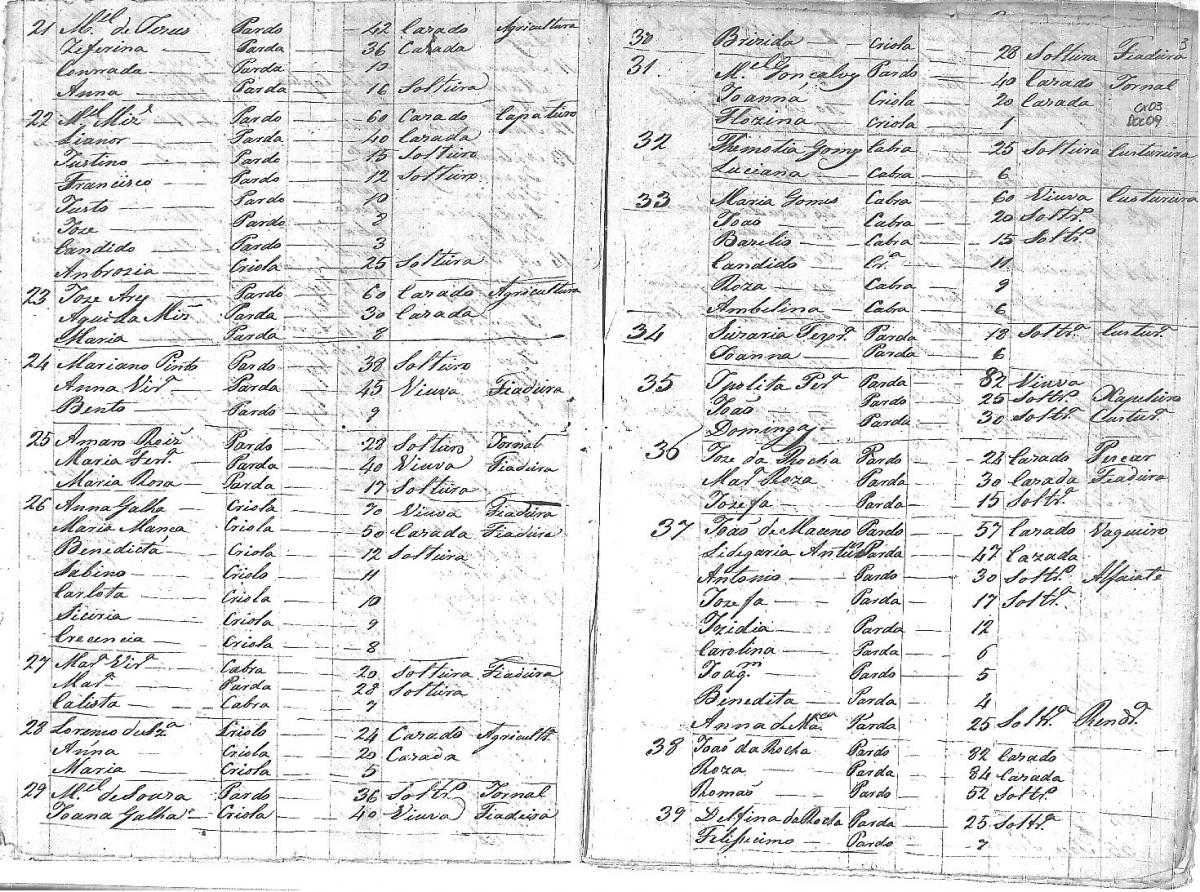 21 M.el de Jezus Pardo 42 Cazado Agricultura
Zeferina Parda 36 Cazada
Conrrada Parda 13
Anna Parda 16 Soltura
22 M.el Miz Pardo 60 Cazado Capaturo
Lianor Parda 40 Cazada
Justino Pardo 15 Solturo
Francisco Pardo 12 Solturo
Justo Pardo 10
Joze Pardo 2
Candido Pardo 3
Ambrozia Criola 25 Soltura
23 Joze Pardo 60 Cazado Agricultura
Agueda Miz Parda 30 Cazada
Maria Parda 8
24 Mariano Pinto Pardo 38 Solturo
Anna Vir.a Parda 45 Viuva Fiadura
Bento Pardo 9
25 Amaro Roiz Pardo 28 Solturo Jornal
Maria Ferr.a Parda 40 Viuva Fiadura
Maria Roza Parda 17 Soltura
26 Anna Galha Criola 70 Viuva Fiadura
Maria Manca Criola 50 Cazada Fiadura
Benedicta Criola 12 Soltura
Sabino Criolo 11
Carlota Criola 10
Criola 9
Crecencia Criola 8
27 Mar.a Vir.a Cabra 20 Soltura Fiadura
Mar.a Parda 28 Soltura
Calista Cabra 7
28 Lorenso de Sz.a Criolo 24 Cazado Agricultr.
Anna Criola 20 Cazada
Maria Criola 5
29 M.el de Souza Pardo 36 Soltr.o Jornal
Joana Galha Criola 40 Viuva Fiadura
3
30 Brizida Criola 28 Soltura Fiadura
31 M.el Gonçalvez Pardo 40 Cazado Jornal
Joanna Criola 20 Cazada
CX03
DOC09
Flozina Criola 1
32 Themotia Gomez Cabra 25 Soltura Custureira
Luciana Cabra 6
33 Maria Gomes Cabra 60 Viuva Custureira
Joaõ Cabra 20 Soltr.o
Bazilio Cabra 15 Soltr.o
Candido Cr.a 11
Roza Cabra 9
Ambelina Cabra 6
34 Parda 18 Soltr.a Custur.a
Joanna Parda 6
35 Ipolita Per.a Parda 82 Viuva
Joaõ Pardo 25 Soltr.o
Domingas Parda 30 Soltr.a Custur.a
36 Joze da Rocha Pardo 24 Cazado Pescar
Mar.a Roza Parda 30 Cazada Fiadura
Jozefa Parda 15 Soltr.a
37 Joaõ de Pardo 57 Cazado Vaquuro
Parda 47 Cazada
Antonio Pardo 30 Soltr.o Alfaiate
Jozefa Parda 17 Soltr.a
Izidia Parda 12
Carolina Parda 6
Joaq.m Pardo 5
Benedita Parda 4
Anna de Parda 25 Soltr.a Rendr.a
38 Joaõ da Rocha Pardo 82 Cazado
Roza Parda 84 Cazada
Romaõ Pardo 52 Soltr.o
39 Delfina da Rocha Parda 25 Soltr.a
Pardo 7